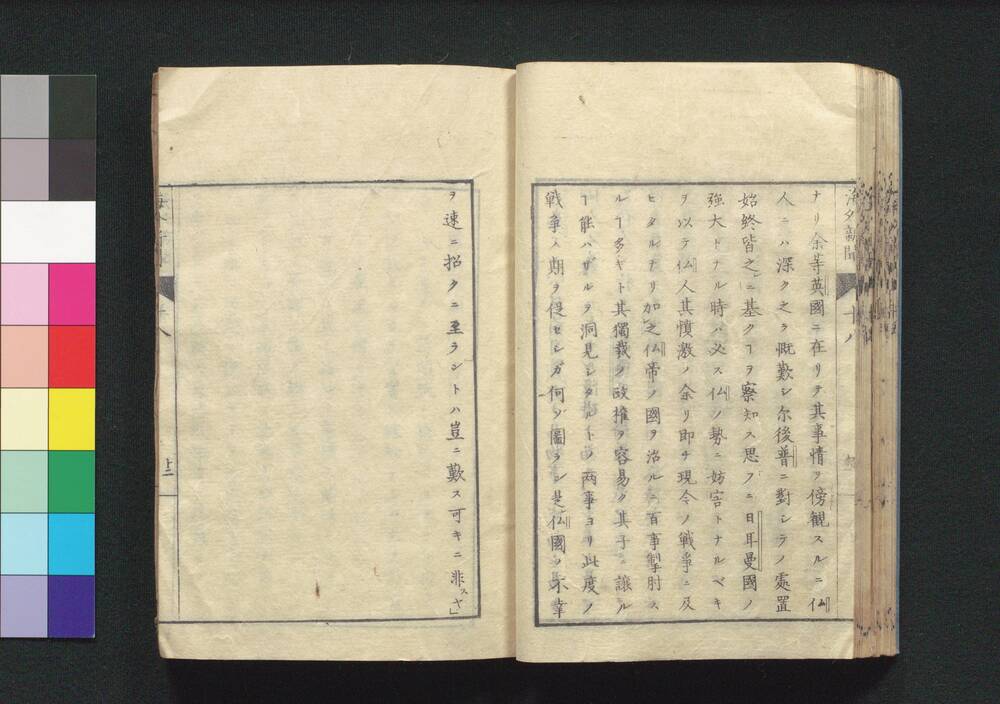 ナリ余等英國ニ在リテ其事情ヲ傍観スルニ仏
人ニハ深ク之ヲ慨歎シ尓後普ニ對シテノ處置
始終皆之ニ基クヿヲ察知ス思フニ日耳曼國ノ
強大トナル時ハ必ス仏ノ勢ニ妨害トナルベキ
ヲ以テ仏人其憤激ノ余リ即チ現今ノ戦争ニ及
ヒタルナリ加之仏帝ノ國ヲ治ルニ百事掣肘ス
ルヿ多キト其獨裁ノ政権ヲ容易ク其子ニ譲ル
ヿ能ハザルヲ洞見シタルトノ両事ヨリ此度ノ
戦争ノ期ヲ促セシガ何ゾ圖ラン是仏國ノ不幸
ヲ速ニ招クニ至ラントハ豈ニ歎ス可キニ非スヤ」
十二